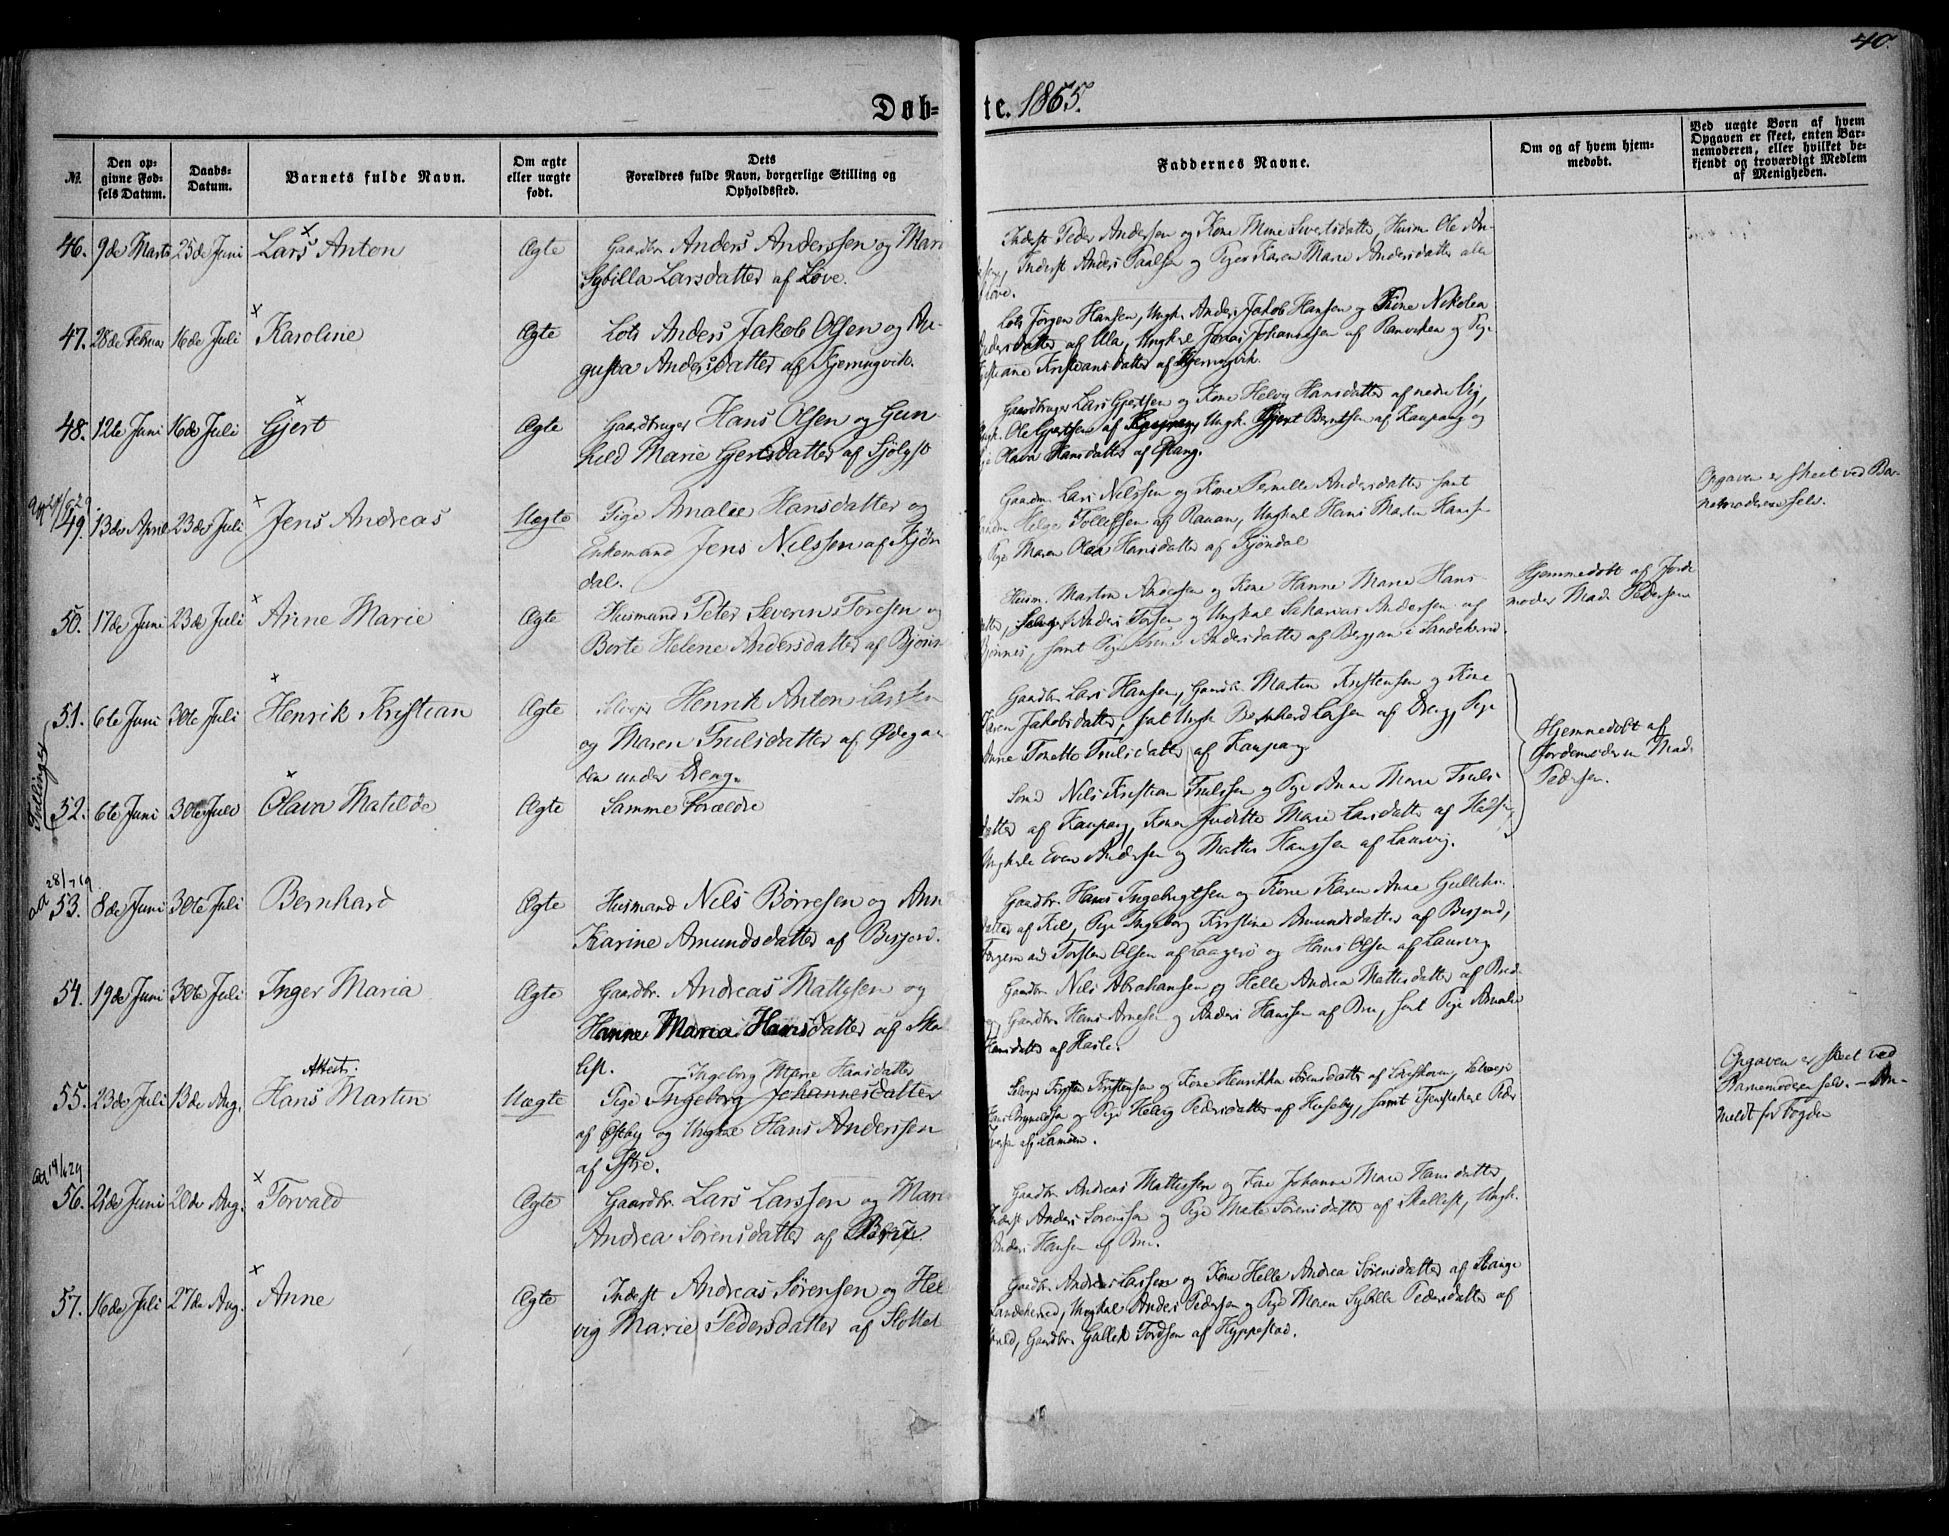 40.
Døb-te. 1865.
No. Den op-givne Fød-sels Datum. Daabs-Datum. Barnets fulde Navn. Om ægte eller uægte født. Dets Forældres fulde Navn, borgerlige Stilling og Opholdssted. Faddernes Navne. Om og af hvem hjem-medøbt. Ved uægte Børn af hvem Opgaven er skeet, enten Bar-nemoderen, eller hvilket be-kjendt og troværdigt Medlem af Menigheden.
46. 9de Marts 25de Juni Lars Anton Ægte Gaardbr. Anders Anderssen og Mari
Sybilla Larsdatter af Løve.
Inderst Peder Andersen og Kone Mine Sivertsdatter, Huusm. Ole An-
Inderst Anders Paulsen og Pige Karen Marie Andersdatter alle
Løve.
47. 28de Februar 16de Juli Karoline Ægte Lots Anders Jakob Olsen og Au-
gusta Andersdatter af Kjerringvik.
Lots Jørgen Hansen, Ungk. Anders Jakob Hansen og Kone Nikolea
dersdatter af Ula, Ungkarl Johannessen af Ranviken og Pige
Kristiansdatter af Kjerringvik.
48. 12te Juni 16de Juli Gjert Ægte Gaardbruger Hans Olsen og Gun-
hild Marie Gjertsdatter af Sjølyst
Gaardbruger Lars Gjertsen og Kone Helvig Hansdatter af nedre Vig,
Ungk. Ole Gjertsen af Kaupang, Ungk. Gjert Berntsen af Kaupang og
Olava Hansdatter af Stang.
49. 13de April 23de Juli Jens Andreas Uægte Pige Amalie Hansdatter og
Enkemand Jens Nilssen af Kjøn
dal.
Gaardm. Lars Nilssen og Kone Pernille Andersdatter samt
Helge Tollefsen af Rauan, Ungkarl Hans Martin Hanse
Pige Maren Olea Hansdatter af Kjøndal
Opgaven er skeet ved Bar-
nemoderen selv.
50. 17de Juni 23de Juli Anne Marie Ægte Husmand Peter Severin Toresen og
Berte Helene Andersdatter af Bjønn-
Husm. Martin Andersen og Kone Hanne Marie Hans-
datter, Selvejer Anders Torsen og Ungkarl Sakarias Andersen af
Bjønnes, samt Pige Andersdatter af Bergan i Sandeherred.
Hjemmedøbt af Jorde
moder Mad. Pedersen
Tvillinger
51. 6te Juni 30te Juli Henrik Kristian Ægte Selvejer Henrik Anton Larssen
og Maren Trulsdatter af Ødegaar
den under Dreng.
Gaardbr. Lars Hansen, Gaardbr. Martin Kristensen og Kone
Karen Jakobsdatter, samt Ungk. Bernhard Larsen af Dreng, Pige
Anne Tonette Trulsdatter af Kaupang
Hjemmedøbt af
Jordemoderen Mad.
Pedersen.
52. 6te Juni 30te Juli Olava Matilde Ægte Samme Forældre
Sømd Nils Kristian Trulssen og Pige Anne Marie Truls-
datter af Kaupang, Konen Juditte Marie Larsdatter af
Ungkarle Even Andersen og Mattis Hanssen af Laurvig.
28/7 69
53. 8de Juni 30te Juli Bernhard Ægte Husmand Nils Børresen og Ann
Karine Amundsdatter af Bisjord.
Gaardbr. Hans Ingebrigtsen og Kone Karen Anne Gulliks-
datter af Kil, Pige Ingeborg Kirstine Amundsdatter af Bisjord,
Torsten Olsen af Laagerø og Hans Olsen af Laurvig
54. 19de Juni 30te Juli Inger Maria Ægte Gaardbr. Andreas Mattisen og
Hanne Maria Hansdatter af Ska
list.
Gaardbr. Nils Abrahamsen og Helle Andrea Mattisdatter af
Gaardbr. Hans Arnesen og Anders Hanssen af Bru, samt Pige Amalie
Hansdatter af Hasle.
Attest:
55. 23de Juli 13de Aug. Hans Martin Uægte Pige Ingeborg Johannesdatter
Ingeborg Marie Hansdatter
af Østby og Ungkarl Hans Anderssen
af Istre.
Selvejer Kristen Kristensen og Kone Henrikka Sørensdatter af
og Pige Helvig Pedersdatter af Huseby, samt Tjenestekarl Peder
Opgaven er skeet ved
Barnemoderen selv. — An-
meldt for Fogden
56. 21de Juni 20de Aug. Torvald Ægte Gaardbr. Lars Larssen og Maren
Andrea Sørensdatter af
Gaardbr. Andreas Mattissen og Kone Johanne Marie Hansdatter
Inderst Anders Sørenssen og Pige Mate Sørensdatter af Skallist, Ungk.
Anders Hansen af Bru.
57. 16de Juli 27de Aug. Anne Ægte Inderst Andreas Sørensen og Hel
vig Marie Pedersdatter af Slottet
Gaardbr. Andreas Larssen og Kone Helle Andrea Sørensdatter af Stange
Sandeherred, Ungkarl Anders Pedersen og Pige Maren Sybille Pedersdatter af
Gaardbr. Gullik Tordsen af Hyppestad.